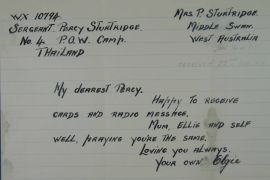 WX 10794
SERGEANT. PERCY STURTRIDGE.
No. 4 P.O.W. CAMP.
THAILAND
MRS P. STURTRIDGE.
MIDDLE SWAN.
WEST AUSTRALIA
My dearest Percy.
HAPPY TO RECEIVE
CARDS AND RADIO MESSAGE.
MUM, ELLIE AND SELF
WELL, PRAYING YOU'RE THE SAME.
LOVING YOU ALWAYS.
YOUR OWN